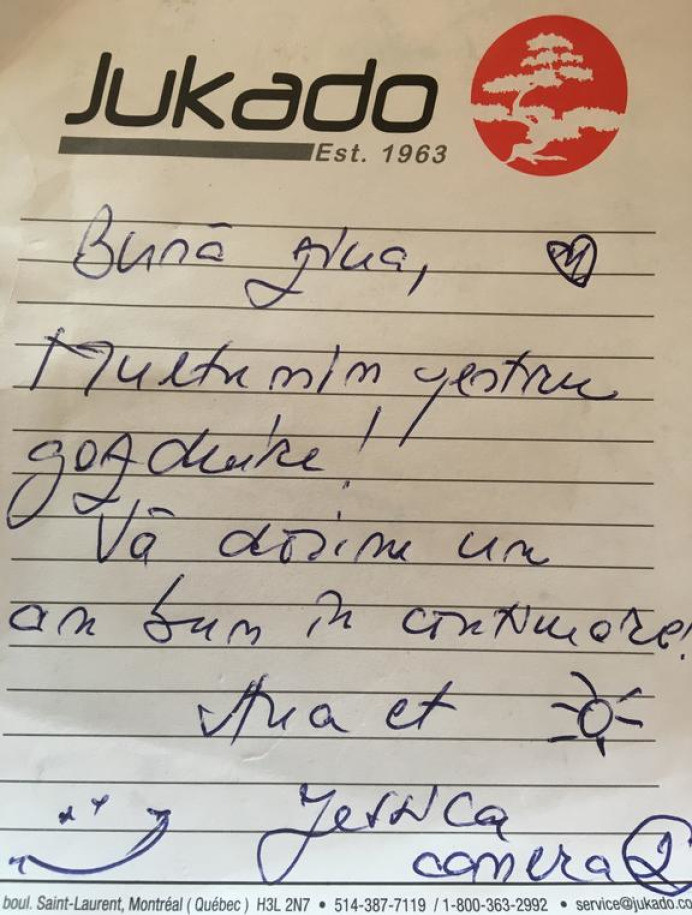 Jukado
Est. 1963
Bună ziua, M
Multumim vestru
gozduire!
Vă dorim un
an bun în continuare!
Ana et
Jessica
camera 2
boul. Saint-Laurent, Montréal ( Québec ) H3L 2N7 • 514-387-7119 / 1-800-363-2992 • service@jukado.co